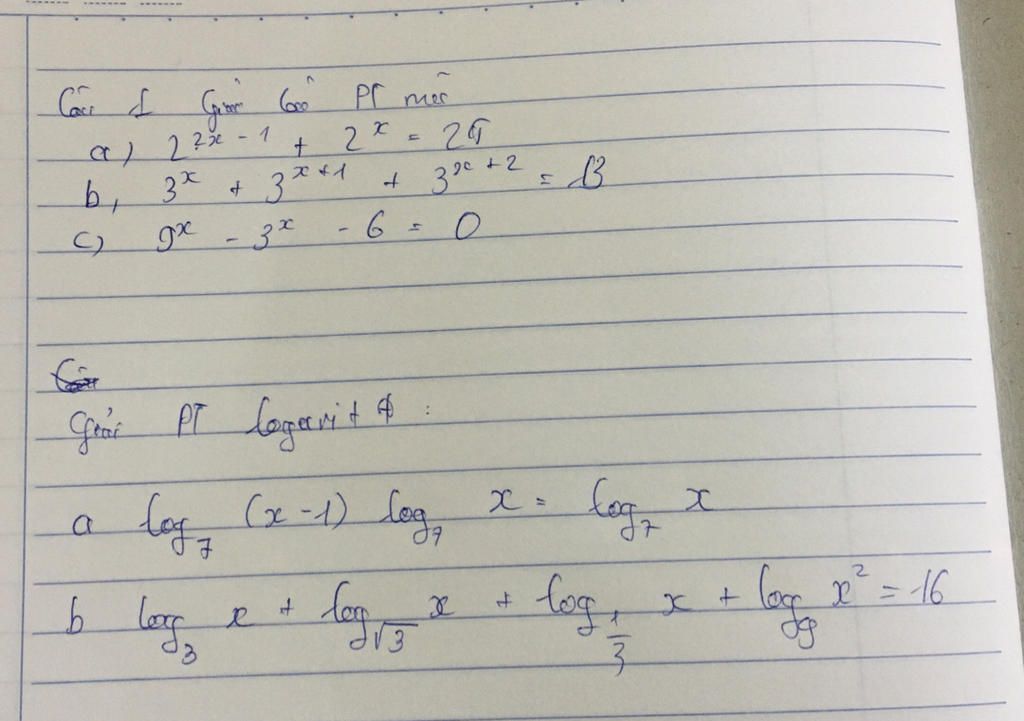 Câu 1 Giải các PT mũ
a) 2^{2x-1} + 2^x =
b, 3^x + 3^{x+1} + 3^{x+2} = 13
c) 9^x - 3^x - 6 = 0
Giải PT logarit :
a log_7 (x-1) log_7 x = log_7 x
b log_3 x + log_{√3} x + log_{1/3} x + log_9 x^2 = 16